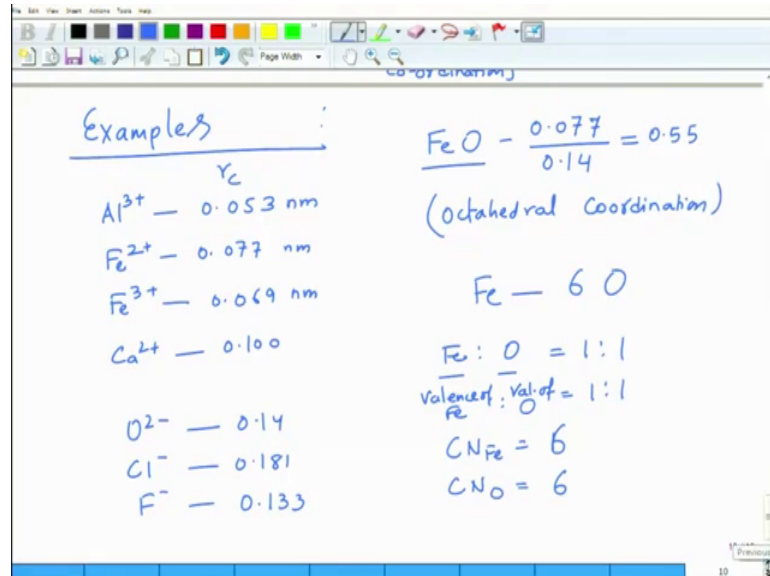 File Edit View Insert Actions Tools Help
B I
Page Width
Co-ordination)
Examples :
rc
Al3+ — 0.053 nm
Fe2+ — 0.077 nm
Fe3+ — 0.069 nm
Ca2+ — 0.100
O2- — 0.14
Cl- — 0.181
F- — 0.133
FeO - 0.077 / 0.14 = 0.55
(Octahedral Coordination)
Fe — 6 O
Fe : O = 1:1
Valence of Fe : Val. of O = 1:1
CNFe = 6
CNO = 6
Previous
10